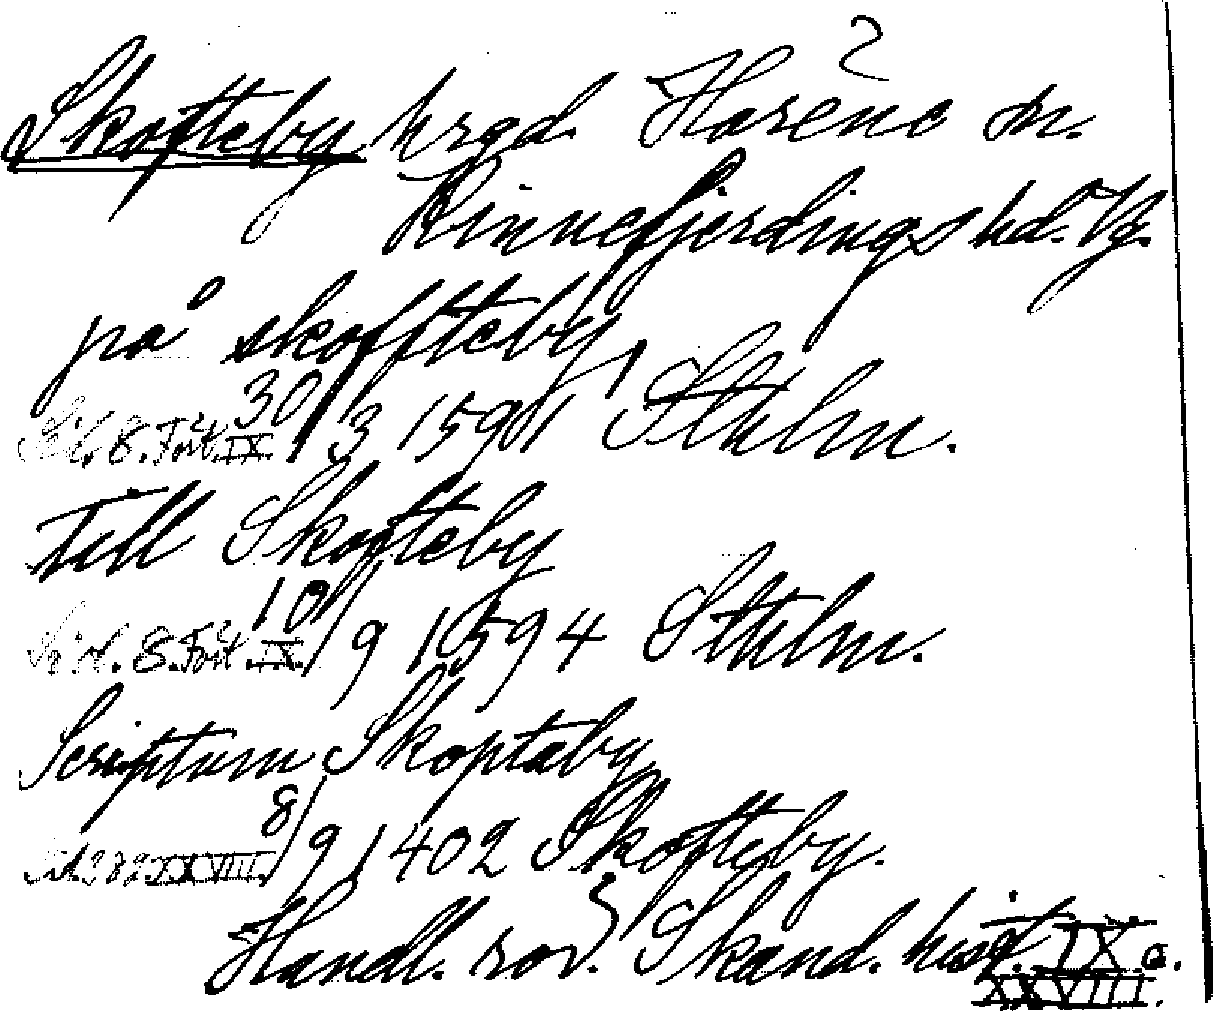 Skofteby hrgd. Härene sn.
Kinnefjerdings hd. Vg.
på skoffteby
Sid. 8. Fört. IX. 30/3 1591 Sthlm.
Till Skofteby
Sid. 8. Fört. IX. 10/9 1594 Sthlm.
Scriptum Skoptaby
Sid. 272 XXVIII. 8/9 1402 Skofteby.
Handl. rör. Skand. hist. IX o.
XXVIII.